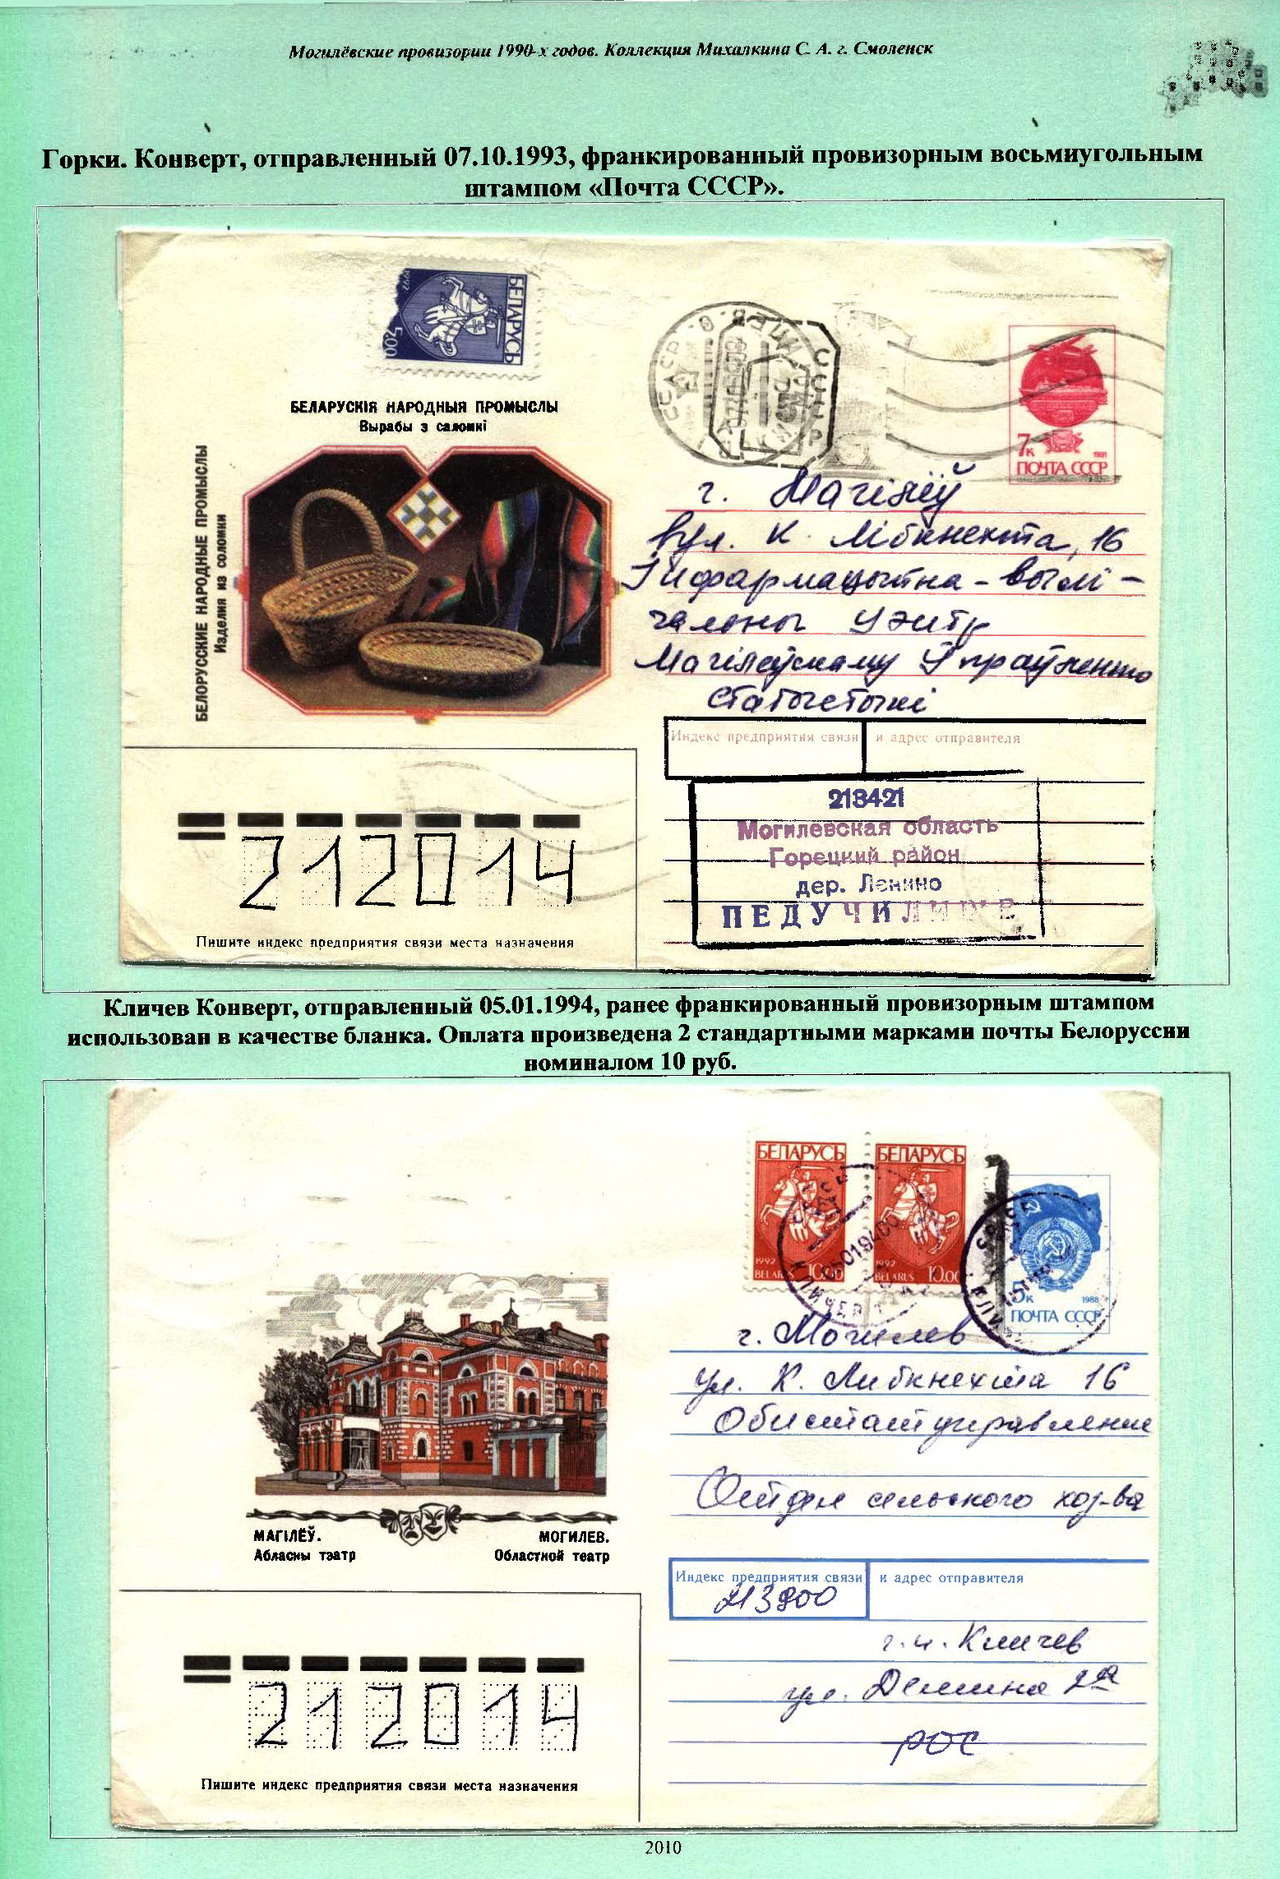 Могилёвские провизории 1990-х годов. Коллекция Михалкина С. А. г. Смоленск
Горки. Конверт, отправленный 07.10.1993, франкированный провизорным восьмиугольным
штампом «Почта СССР».
БЕЛАРУСЬ
1992
5.00
БЕЛАРУСКІЯ НАРОДНЫЯ ПРОМЫСЛЫ
Вырабы з саломкі
БЕЛОРУССКИЕ НАРОДНЫЕ ПРОМЫСЛЫ
Изделия из соломки
СССР
7к
1991
ПОЧТА СССР
г. Магілёў
вул. К. Лібкнехта, 16
Інфармацыйна-вылі-
чальны цэнтр
Магілёўскаму Упраўленню
статыстыкі
Индекс предприятия связи и адрес отправителя
213421
Могилевская область
Горецкий район
дер. Ленино
ПЕДУЧИЛИЩЕ
212014
Пишите индекс предприятия связи места назначения
Кличев Конверт, отправленный 05.01.1994, ранее франкированный провизорным штампом
использован в качестве бланка. Оплата произведена 2 стандартными марками почты Белоруссии
номиналом 10 руб.
БЕЛАРУСЬ БЕЛАРУСЬ
1992 1992
BELARUS 10.00 BELARUS 10.00
КЛИЧЕВ
5к
1988
ПОЧТА СССР
г. Могилев
ул. К. Либкнехта 16
Облстатуправление
Отдел сельского хоз-ва
МАГІЛЁЎ. МОГИЛЕВ.
Абласны тэатр Областной театр
Индекс предприятия связи и адрес отправителя
213900
г.п. Кличев
ул. Демина 2а
РОС
212014
Пишите индекс предприятия связи места назначения
2010